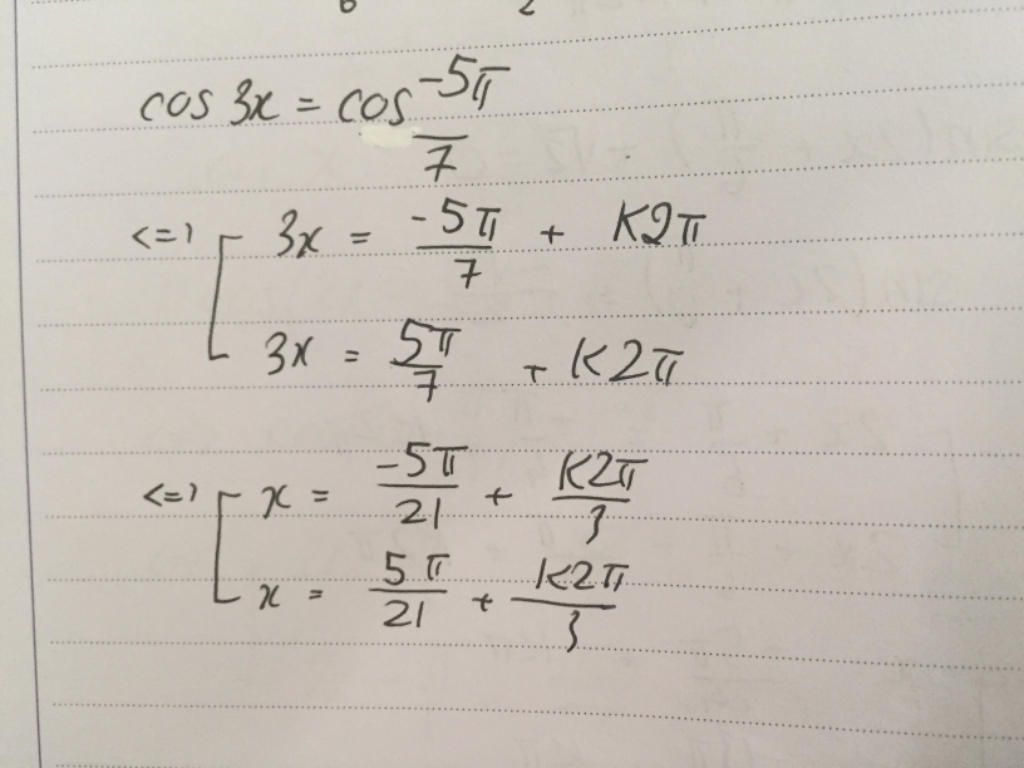 cos 3x = cos -5π/7
<=> [ 3x = -5π/7 + K2π
3x = 5π/7 + K2π
<=> [ x = -5π/21 + K2π/3
x = 5π/21 + K2π/3